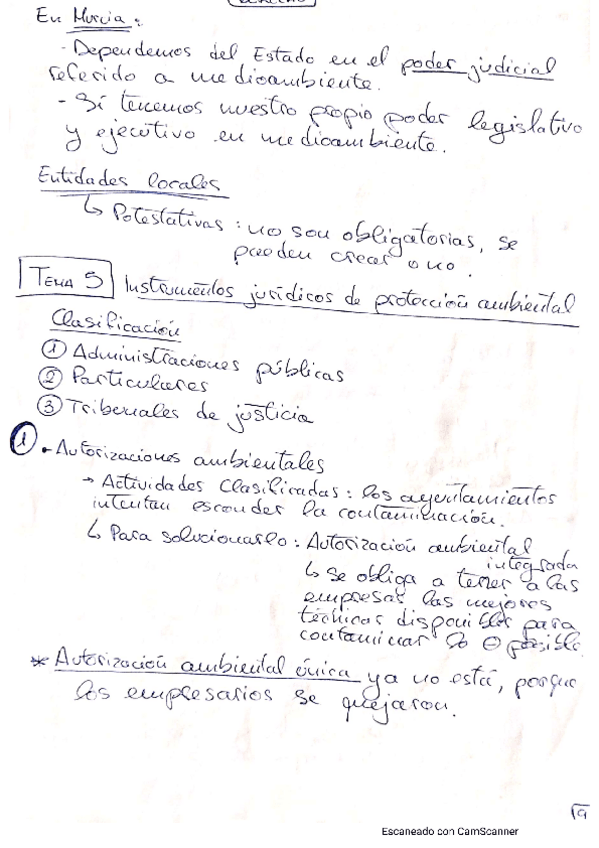 En Murcia:
- Dependemos del Estado en el poder judicial
referido a medioambiente.
- Sí tenemos nuestro propio poder legislativo
y ejecutivo en medioambiente.
Entidades locales
↳ Potestativas: no son obligatorias, se
pueden crear o no.
TEMA 5 Instrumentos jurídicos de protección ambiental
Clasificación
① Administraciones públicas
② Particulares
③ Tribunales de justicia
① • Autorizaciones ambientales
→ Actividades clasificadas: los ayuntamientos
intentan esconder la contaminación.
↳ Para solucionarlo: Autorización ambiental
integrada
↳ Se obliga a tener a las
empresas las mejores
técnicas disponibles para
contaminar lo ⊖ posible.
* Autorización ambiental única ya no está, porque
los empresarios se quejaron.
Escaneado con CamScanner